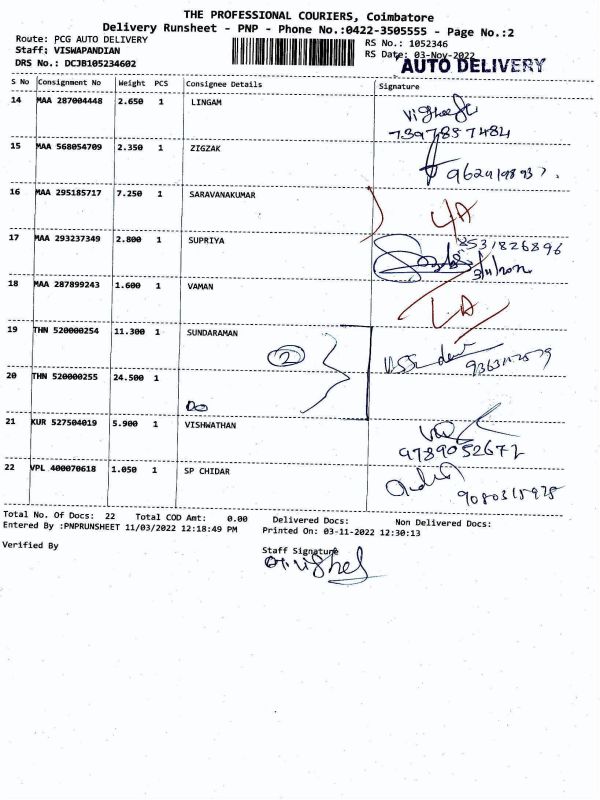 THE PROFESSIONAL COURIERS, Coimbatore
Delivery Runsheet - PNP - Phone No.:0422-3505555 - Page No.:2
Route: PCG AUTO DELIVERY
RS No.: 1052346
Staff: VISWAPANDIAN
RS Date: 03-Nov-2022
DRS No.: DCJB105234602
AUTO DELIVERY
S No Consignment No Weight PCS Consignee Details Signature
14 MAA 287004448 2.650 1 LINGAM
7397857484
15 MAA 568054709 2.350 1 ZIGZAK
16 MAA 295185717 7.250 1 SARAVANAKUMAR
17 MAA 293237349 2.800 1 SUPRIYA
8531826896
3/11/2022
18 MAA 287899243 1.600 1 VAMAN
19 THN 520000254 11.300 1 SUNDARAMAN
2
20 THN 520000255 24.500 1
Do
21 KUR 527504019 5.900 1 VISHWATHAN
9789052672
22 VPL 400070618 1.050 1 SP CHIDAR
Total No. Of Docs: 22 Total COD Amt: 0.00 Delivered Docs: Non Delivered Docs:
Entered By :PNPRUNSHEET 11/03/2022 12:18:49 PM Printed On: 03-11-2022 12:30:13
Verified By
Staff Signature